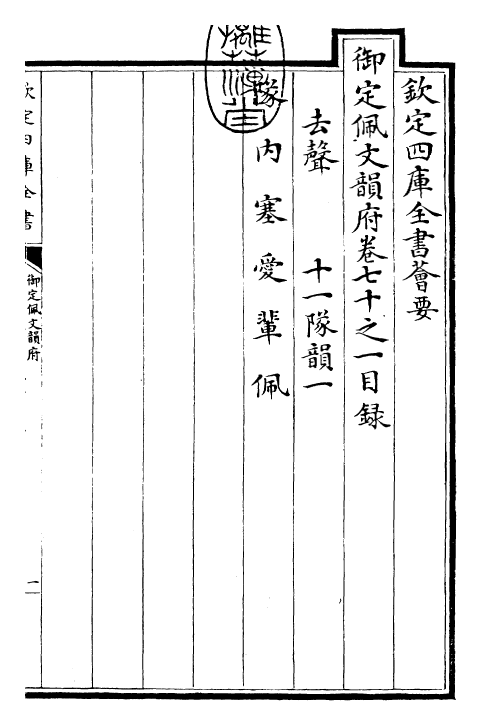 欽定四庫全書薈要
御定佩文韻府卷七十之一目録
去聲 十一隊韻一
隊 内 塞 愛 輩 佩
欽定四庫全書
御定佩文韻府
一